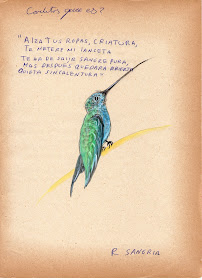 "ALZA TUS ROPAS, CRIATURA,
TE METERE MI LANCETA
TE HA DE SALIR SANGRE PURA,
MAS DESPUÉS QUEDARA
QUIETA SIN CALENTURA"
R SANGRIA